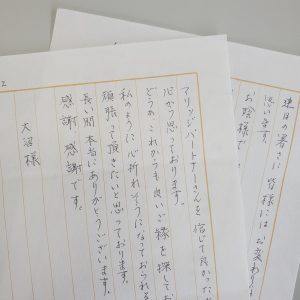 連日の暑さに皆様にはお変わり
思います。
お陰様で
2
マリッジパートナーさんを信じて良かった
心から思っております。
どうか、これからも良いご縁を探してお
私のように心折れそうになっておられる
頑張って頂きたいと思っております。
長い間本当にありがとうございます。
感謝感謝です。
大沼様